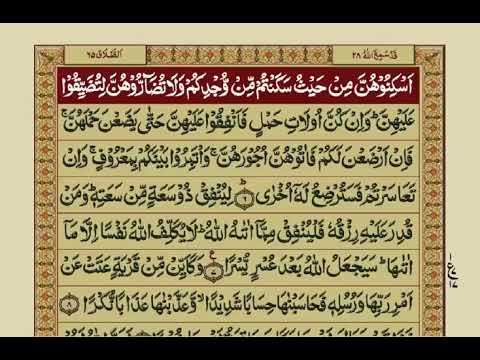 قَدْ سَمِعَ اللّٰهُ ٢٨
اَلطَّلَاق ٦٥
اَسْكِنُوْهُنَّ مِنْ حَيْثُ سَكَنْتُمْ مِّنْ وُّجْدِكُمْ وَلَا تُضَآرُّوْهُنَّ لِتُضَيِّقُوْا
عَلَيْهِنَّ ؕ وَاِنْ كُنَّ اُولَاتِ حَمْلٍ فَاَنْفِقُوْا عَلَيْهِنَّ حَتّٰى يَضَعْنَ حَمْلَهُنَّ ۚ
فَاِنْ اَرْضَعْنَ لَكُمْ فَاٰتُوْهُنَّ اُجُوْرَهُنَّ ۚ وَاْتَمِرُوْا بَيْنَكُمْ بِمَعْرُوْفٍ ۚ وَاِنْ
تَعَاسَرْتُمْ فَسَتُرْضِعُ لَهٗۤ اُخْرٰى ؕ ﴿٦﴾ لِيُنْفِقْ ذُوْ سَعَةٍ مِّنْ سَعَتِهٖ ؕ وَمَنْ
قُدِرَ عَلَيْهِ رِزْقُهٗ فَلْيُنْفِقْ مِمَّاۤ اٰتٰىهُ اللّٰهُ ؕ لَا يُكَلِّفُ اللّٰهُ نَفْسًا اِلَّا مَاۤ
اٰتٰىهَا ؕ سَيَجْعَلُ اللّٰهُ بَعْدَ عُسْرٍ يُّسْرًا ﴿٧﴾ ع وَكَاَيِّنْ مِّنْ قَرْيَةٍ عَتَتْ عَنْ
اَمْرِ رَبِّهَا وَرُسُلِهٖ فَحَاسَبْنٰهَا حِسَابًا شَدِيْدًا ۙ وَّعَذَّبْنٰهَا عَذَابًا نُّكْرًا ﴿٨﴾